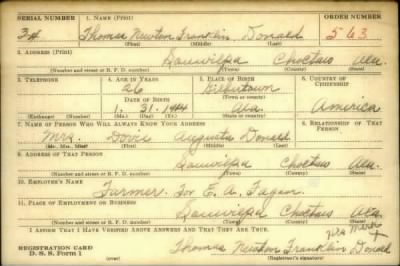 SERIAL NUMBER 1. NAME (Print) ORDER NUMBER
34 Thomas Newton Franklin Donald 563
(First) (Middle) (Last)
2. ADDRESS (Print)
Souwilpa Choctaw Ala.
(Number and street or R. F. D. number) (Town) (County) (State)
3. TELEPHONE 4. AGE IN YEARS 5. PLACE OF BIRTH 6. COUNTRY OF CITIZENSHIP
26 Gilbertown
DATE OF BIRTH (Town or county)
1. 31. 1914 Ala. America
(Exchange) (Number) (Mo.) (Day) (Yr.) (State or country)
7. NAME OF PERSON WHO WILL ALWAYS KNOW YOUR ADDRESS 8. RELATIONSHIP OF THAT PERSON
Mrs. Augusta Donald
(Mr., Mrs., Miss) (First) (Middle) (Last)
9. ADDRESS OF THAT PERSON
Souwilpa Choctaw Ala.
(Number and street or R. F. D. number) (Town) (County) (State)
10. EMPLOYER'S NAME
Farmer For E. A.
11. PLACE OF EMPLOYMENT OR BUSINESS
Souwilpa Choctaw Ala.
(Number and street or R. F. D. number) (Town) (County) (State)
I AFFIRM THAT I HAVE VERIFIED ABOVE ANSWERS AND THAT THEY ARE TRUE.
His Mark
X
REGISTRATION CARD Thomas Newton Franklin Donald
D. S. S. Form 1 (over) (Registrant's signature)